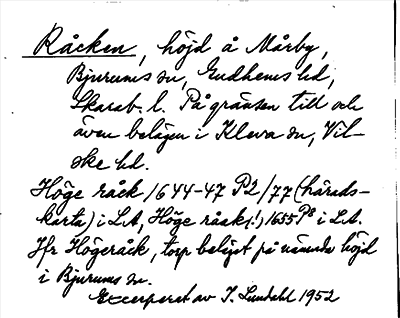 Råcken, höjd å Mårby,
Bjurums sn, Gudhems hd,
Skarab. l. På gränsen till och
även belägen i Kleva sn, Vil-
ske hd.
Höge råck 1644-47 P2/77 (härads-
karta) i LA, Höge råak(!) 1655 P8 i LA.
Jfr Högeråck, torp beläget på nämnda höjd
i Bjurums sn.
Excerperat av I. Lundahl 1952